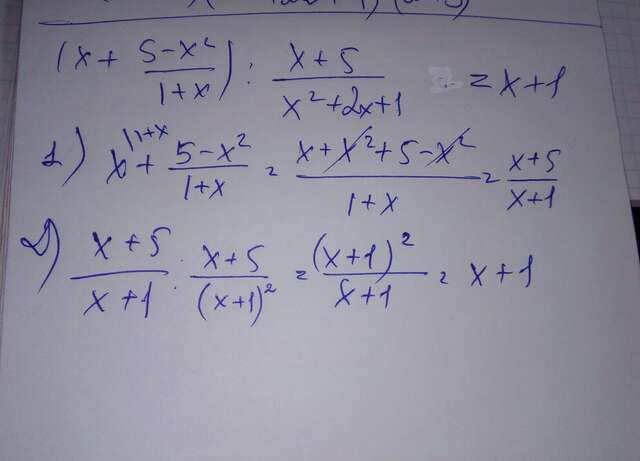 (x + (5-x²)/(1+x)) : (x+5)/(x²+2x+1) = x+1
1) x + (5-x²)/(1+x) = (x+x²+5-x²)/(1+x) = (x+5)/(x+1)
2) (x+5)/(x+1) : (x+5)/(x+1)² = (x+1)²/(x+1) = x+1